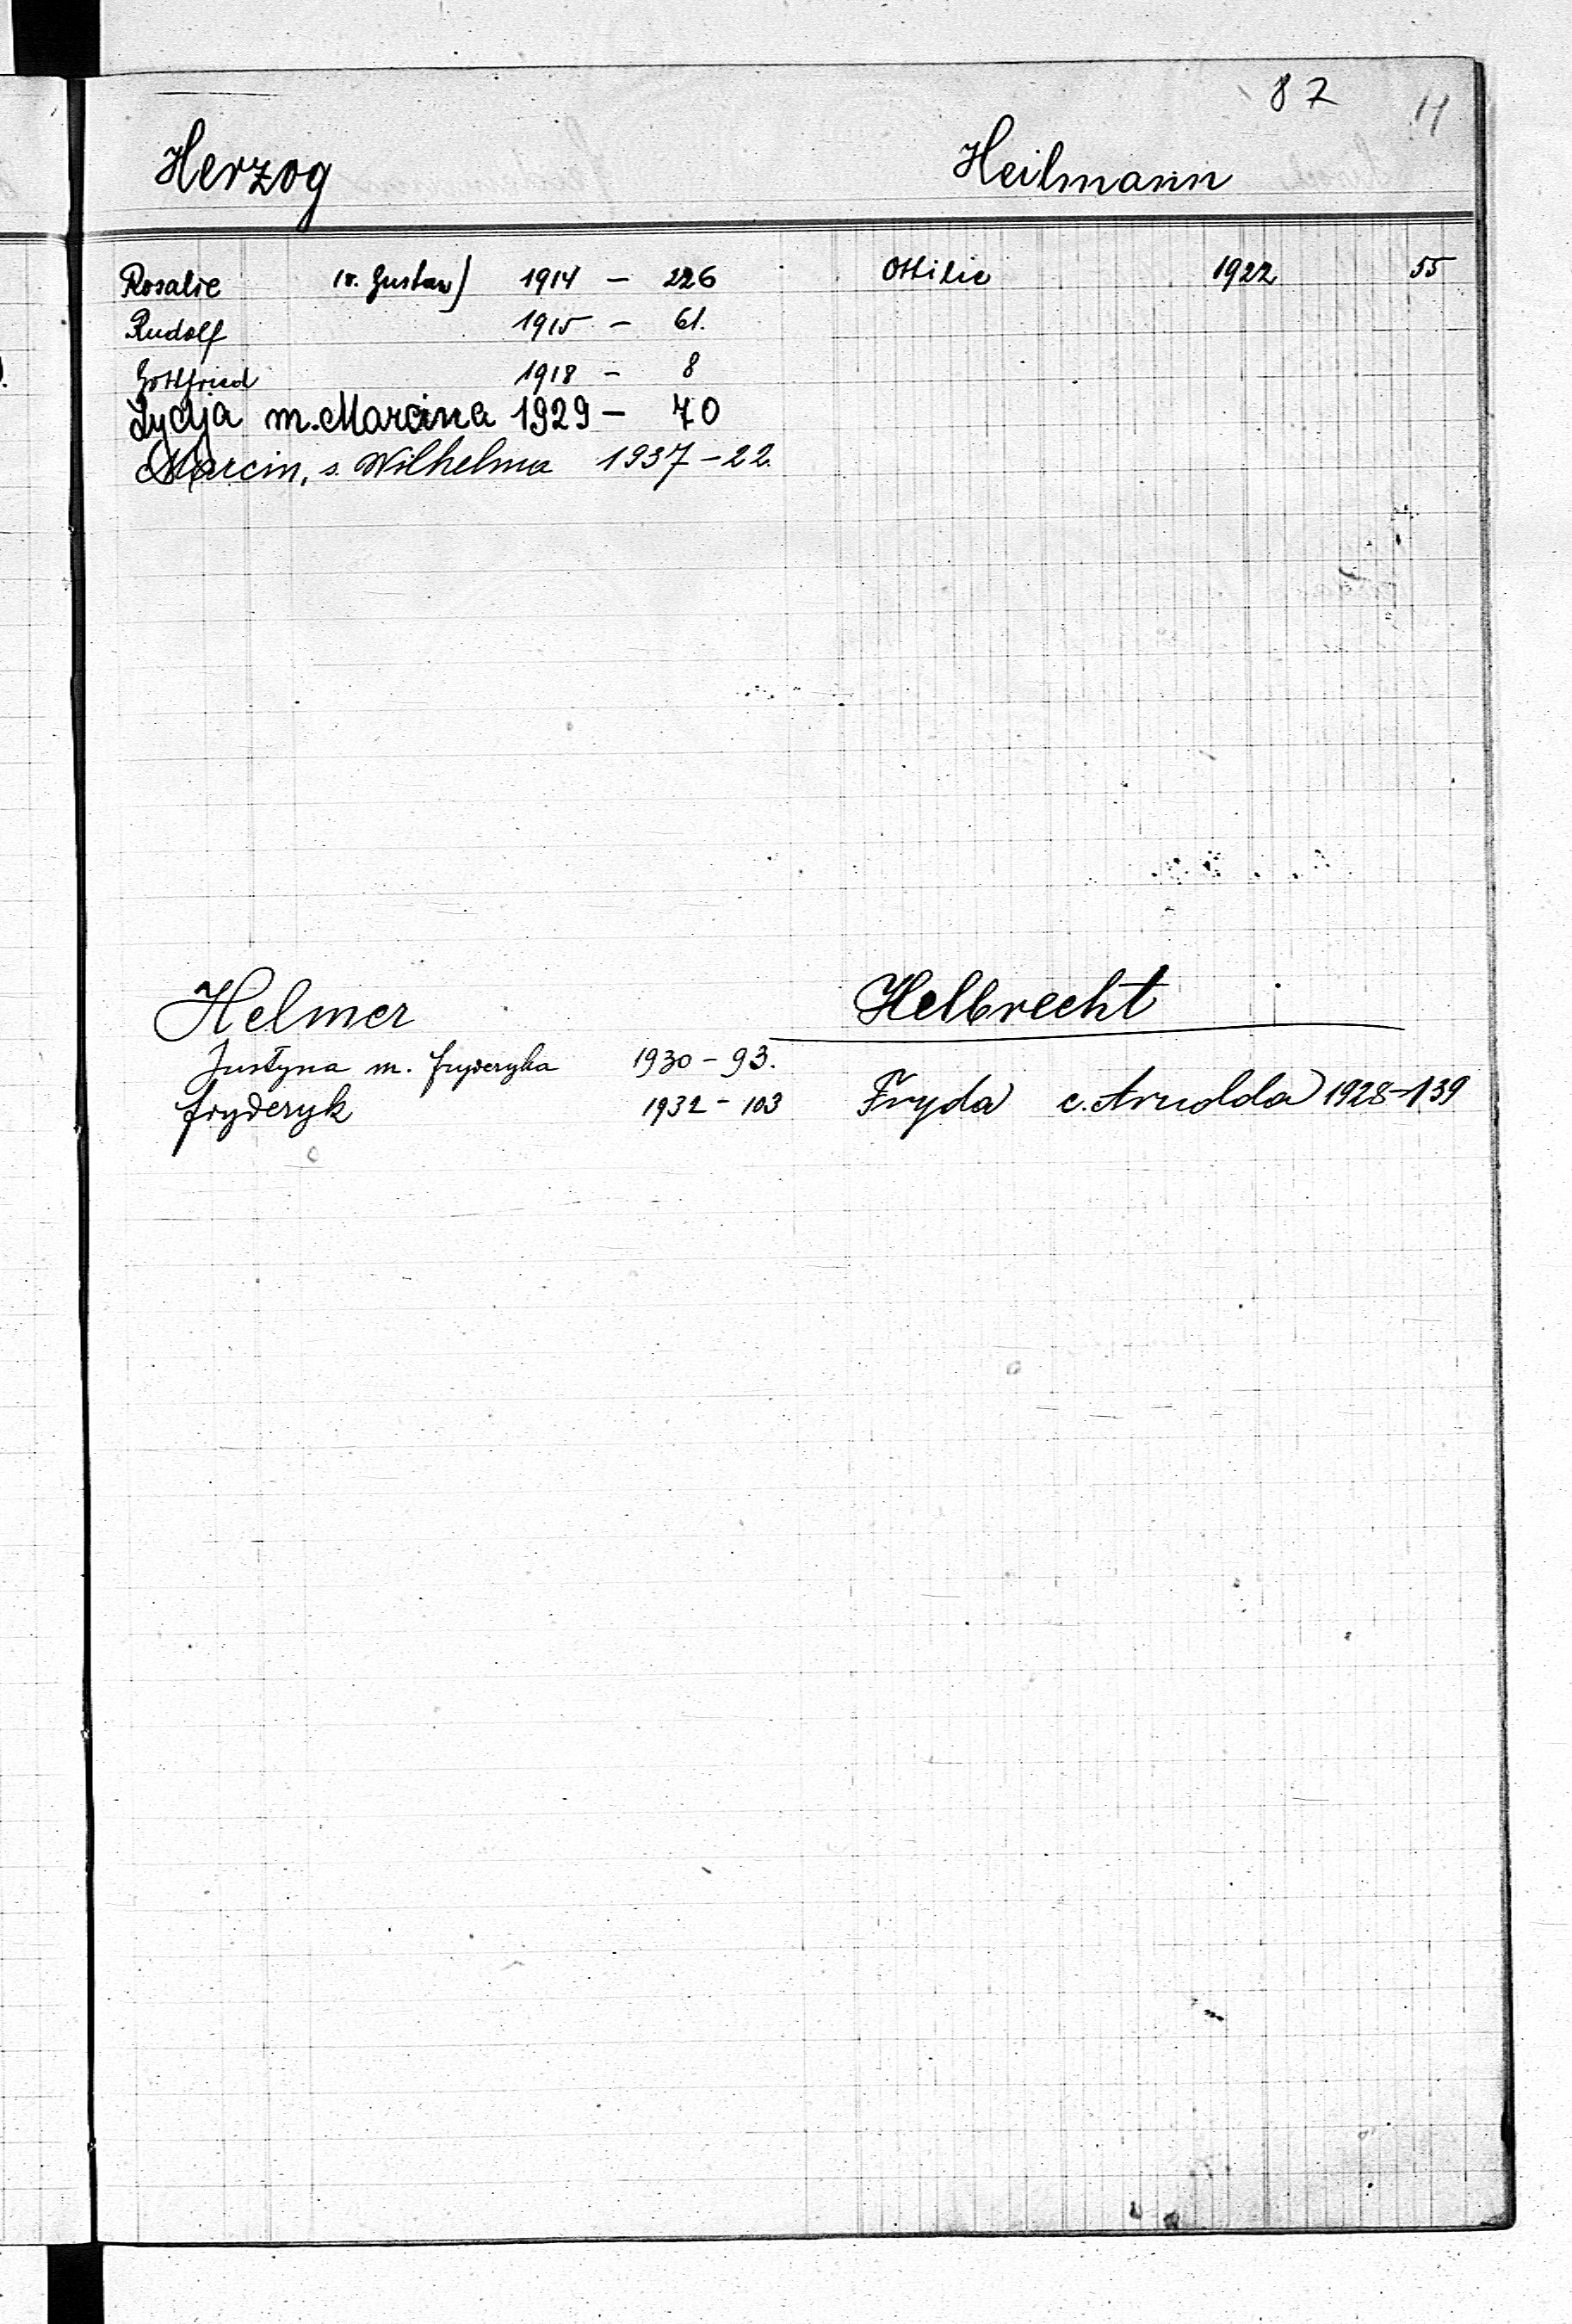 87
11
Herzog
Rosalie (v. Gustav) 1914 - 226
Rudolf 1915 - 61.
Gottfried 1918 - 8
Lydja m. Marcina 1929 - 70
Marcin, s. Wilhelma 1937 - 22.
Heilmann
Ottilie 1922 55
Helmer
Justyna m. Fryderyka 1930 - 93.
Fryderyk 1932 - 103
Helbrecht
Fryda c. Arnolda 1928-139